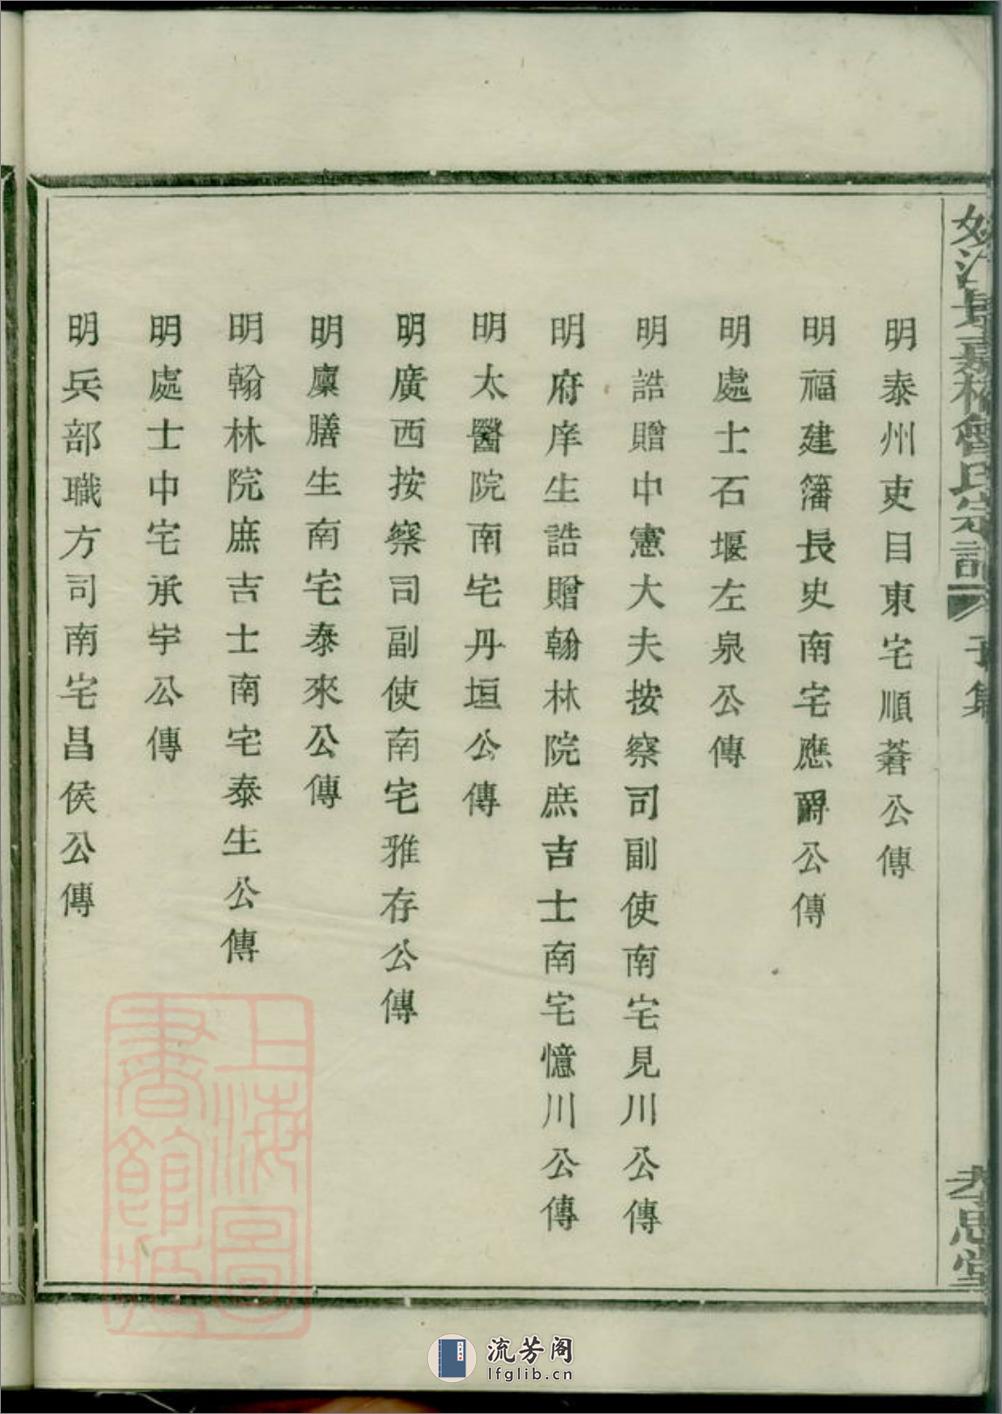 明泰州吏目東宅順蒼公傳
明福建籓長史南宅應爵公傳
明處士石堰左泉公傳
明誥贈中憲大夫按察司副使南宅見川公傳
明府庠生誥贈翰林院庶吉士南宅憶川公傳
明太醫院南宅丹垣公傳
明廣西按察司副使南宅雅存公傳
明廩膳生南宅泰來公傳
明翰林院庶吉士南宅泰生公傳
明處士中宅承宇公傳
明兵部職方司南宅昌侯公傳
氏宗譜
子集
孝思堂
上海圖書館藏
流芳阁
lfglib.cn